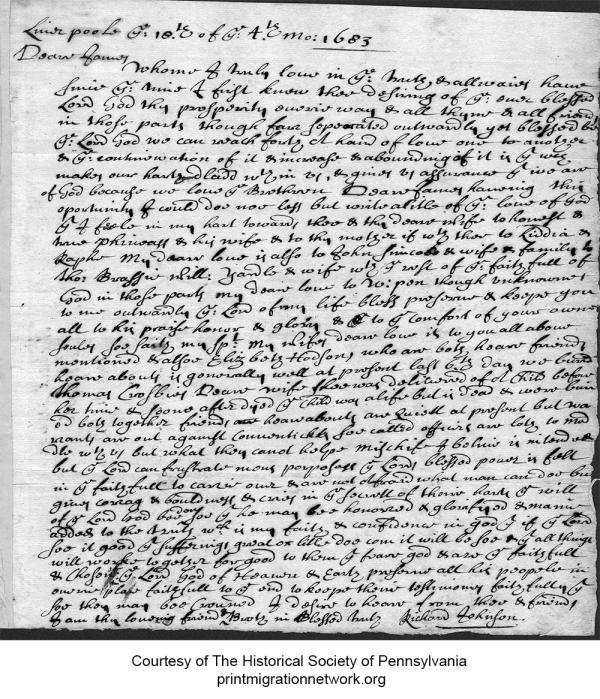 Liverpoole yᵉ: 18ᵗʰ of yᵉ: 4ᵗʰ Mo: 1683
Deare James
Whome I truly love in yᵉ truth, & allwaies have
since yᵉ time I first knew thee desiring of yᵉ ever blessed
Lord God thy prosperity everie way & all thyne & all friends
in those parts though farr seperated outwardly yet blessed be
yᵉ Lord God we can reach forth yᵉ hand of love one to another
& yᵉ continuation of it & increase & abounding of it is yᵗ wᶜʰ
makes our harts gladd wᵗʰin us, & gives us assurance yᵗ we are
of God because we love yᵉ Brethren Deare James haveing this
oportunity I could doe noe less but write a litle of yᵉ love of God
yᵗ I feele in my hart towards thee & thy deare wife to honest &
true Phineas & his wife & to thy mother if wᵗʰ thee to Liddia &
My deare love is also to John Simcocke & wife & family to
Tho: Brassie Will: Yardle & wife wᵗʰ yᵉ rest of yᵉ faithfull of
God in those parts my deare love to W: pen though unknowne
to me outwardly yᵉ Lord of my life bless preserve & keepe you
all to his praise honor & glory & to yᵉ comfort of youre owne
soules soe saith my spᵗ: My wifes deare love is to you all above
mentioned & alsoe Elizbeth Hodson, who are both heare friends
heare abouts is generally well at present last 6ᵗʰ day we buried
thomas Crosbies Deare wife shee was delivered of a Child before
her time & soone after dyed yᵉ Child was alife but is dead & were burie
ed both together friends heare abouts are quiett at present but wa
rrants are out against Conventickls soe called officers are loth to med
dle wᵗʰ us but what they canot helpe mischife I beleive is intended
but yᵉ Lord can frustrate mens purposes yᵉ Lords blessed power is felt
in yᵉ faithfull to carrie over & are not afraid what man can doe but
gives corrag & bouldness & cries in yᵉ secrett of theire harts yᵉ will
of yᵉ Lord God bee done soe yᵗ he may bee honored & glorifyed & many
added to the truth wᶜʰ is my faith & confidence in God yᵗ if yᵉ Lord
see it good yᵗ sufferings great or litle doe com it will be soe & yᵗ all things
will worke together for good to them yᵗ feare God & are yᵉ faithfull
& Chosen yᵉ Lord God of Heaven & Earth preserve all his people in
everie place faithfull to yᵉ end to keepe theire testimonies faithfully yᵗ
soe they may bee Crowned I desire to heare from thee & friends
I am thy loveing friend & in Blessed truth Richard Johnson.
Courtesy of The Historical Society of Pennsylvania
printmigrationnetwork.org